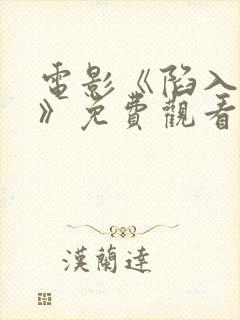 電影《陷入
》免費觀看
漢蘭達